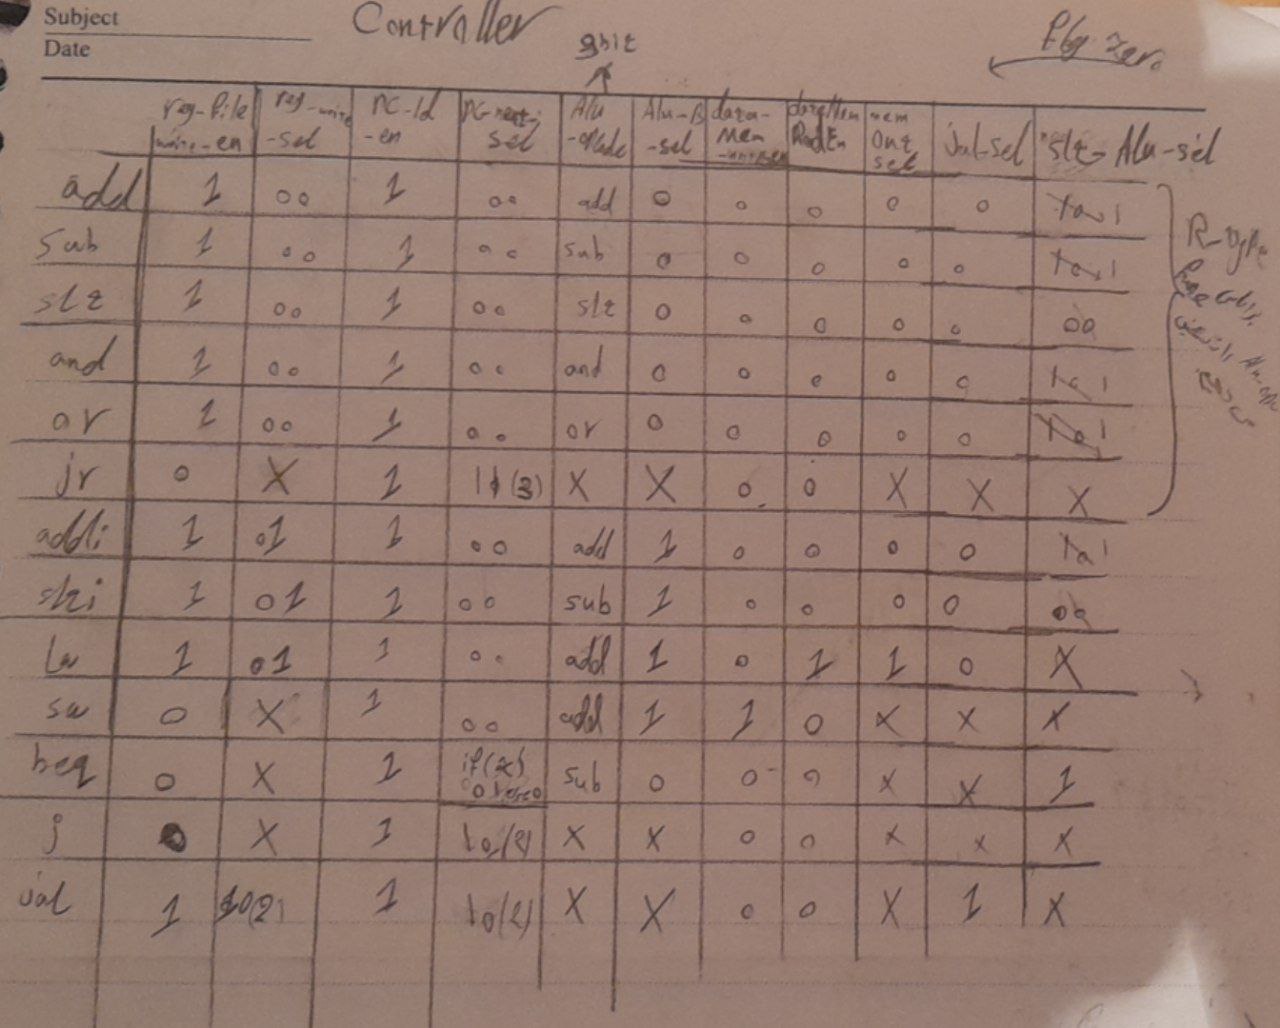 Subject
Date
Controller
3bit
Flag zero
reg-file write-en | reg-write-sel | PC-ld-en | PC-next-sel | Alu-opcode | Alu-B-sel | data-Mem-writeEn | dataMem ReadEn | mem Out sel | Jal-sel | "slt-Alu-sel
add | 1 | 00 | 1 | 00 | add | 0 | 0 | 0 | 0 | 0 | 1
sub | 1 | 00 | 1 | 00 | sub | 0 | 0 | 0 | 0 | 0 | 1
slt | 1 | 00 | 1 | 00 | slt | 0 | 0 | 0 | 0 | 0 | 00
and | 1 | 00 | 1 | 00 | and | 0 | 0 | 0 | 0 | 0 | 1
or | 1 | 00 | 1 | 00 | or | 0 | 0 | 0 | 0 | 0 | 1
jr | 0 | X | 1 | 11(3) | X | X | 0 | 0 | X | X | X
addi | 1 | 01 | 1 | 00 | add | 1 | 0 | 0 | 0 | 0 | 1
slti | 1 | 01 | 1 | 00 | sub | 1 | 0 | 0 | 0 | 0 | 00
lw | 1 | 01 | 1 | 00 | add | 1 | 0 | 1 | 1 | 0 | X
sw | 0 | X | 1 | 00 | add | 1 | 1 | 0 | X | X | X
beq | 0 | X | 1 | if(z) 01 else 0 | sub | 0 | 0 | 0 | X | X | 1
j | 0 | X | 1 | 10(2) | X | X | 0 | 0 | X | X | X
jal | 1 | 10(2) | 1 | 10(2) | X | X | 0 | 0 | X | 1 | X
R-type